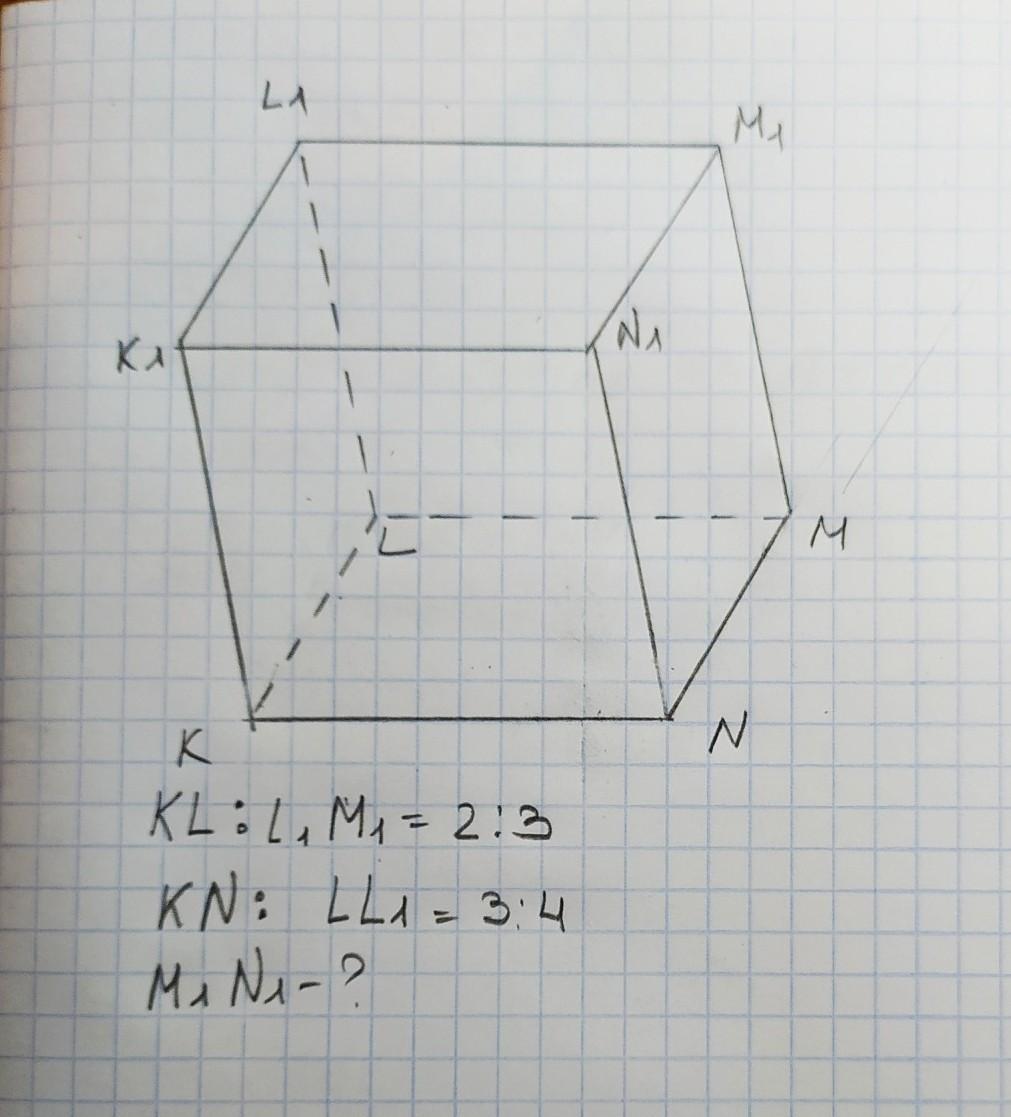 L1
M1
K1
N1
L
M
K
N
KL:L1M1 = 2:3
KN: LL1 = 3:4
M1N1 - ?